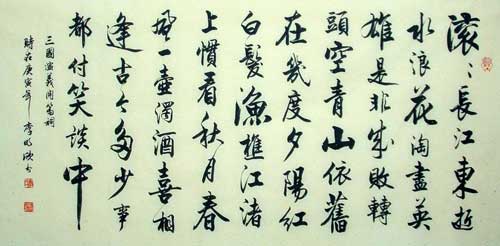 滚〻長江東逝
水浪花淘盡英
雄是非成敗轉
頭空青山依舊
在幾度夕陽紅
白髮漁樵江渚
上慣看秋月春
風一壺濁酒喜相
逢古今多少事
都付笑談中
三國演義開篇詞
時在庚寅年